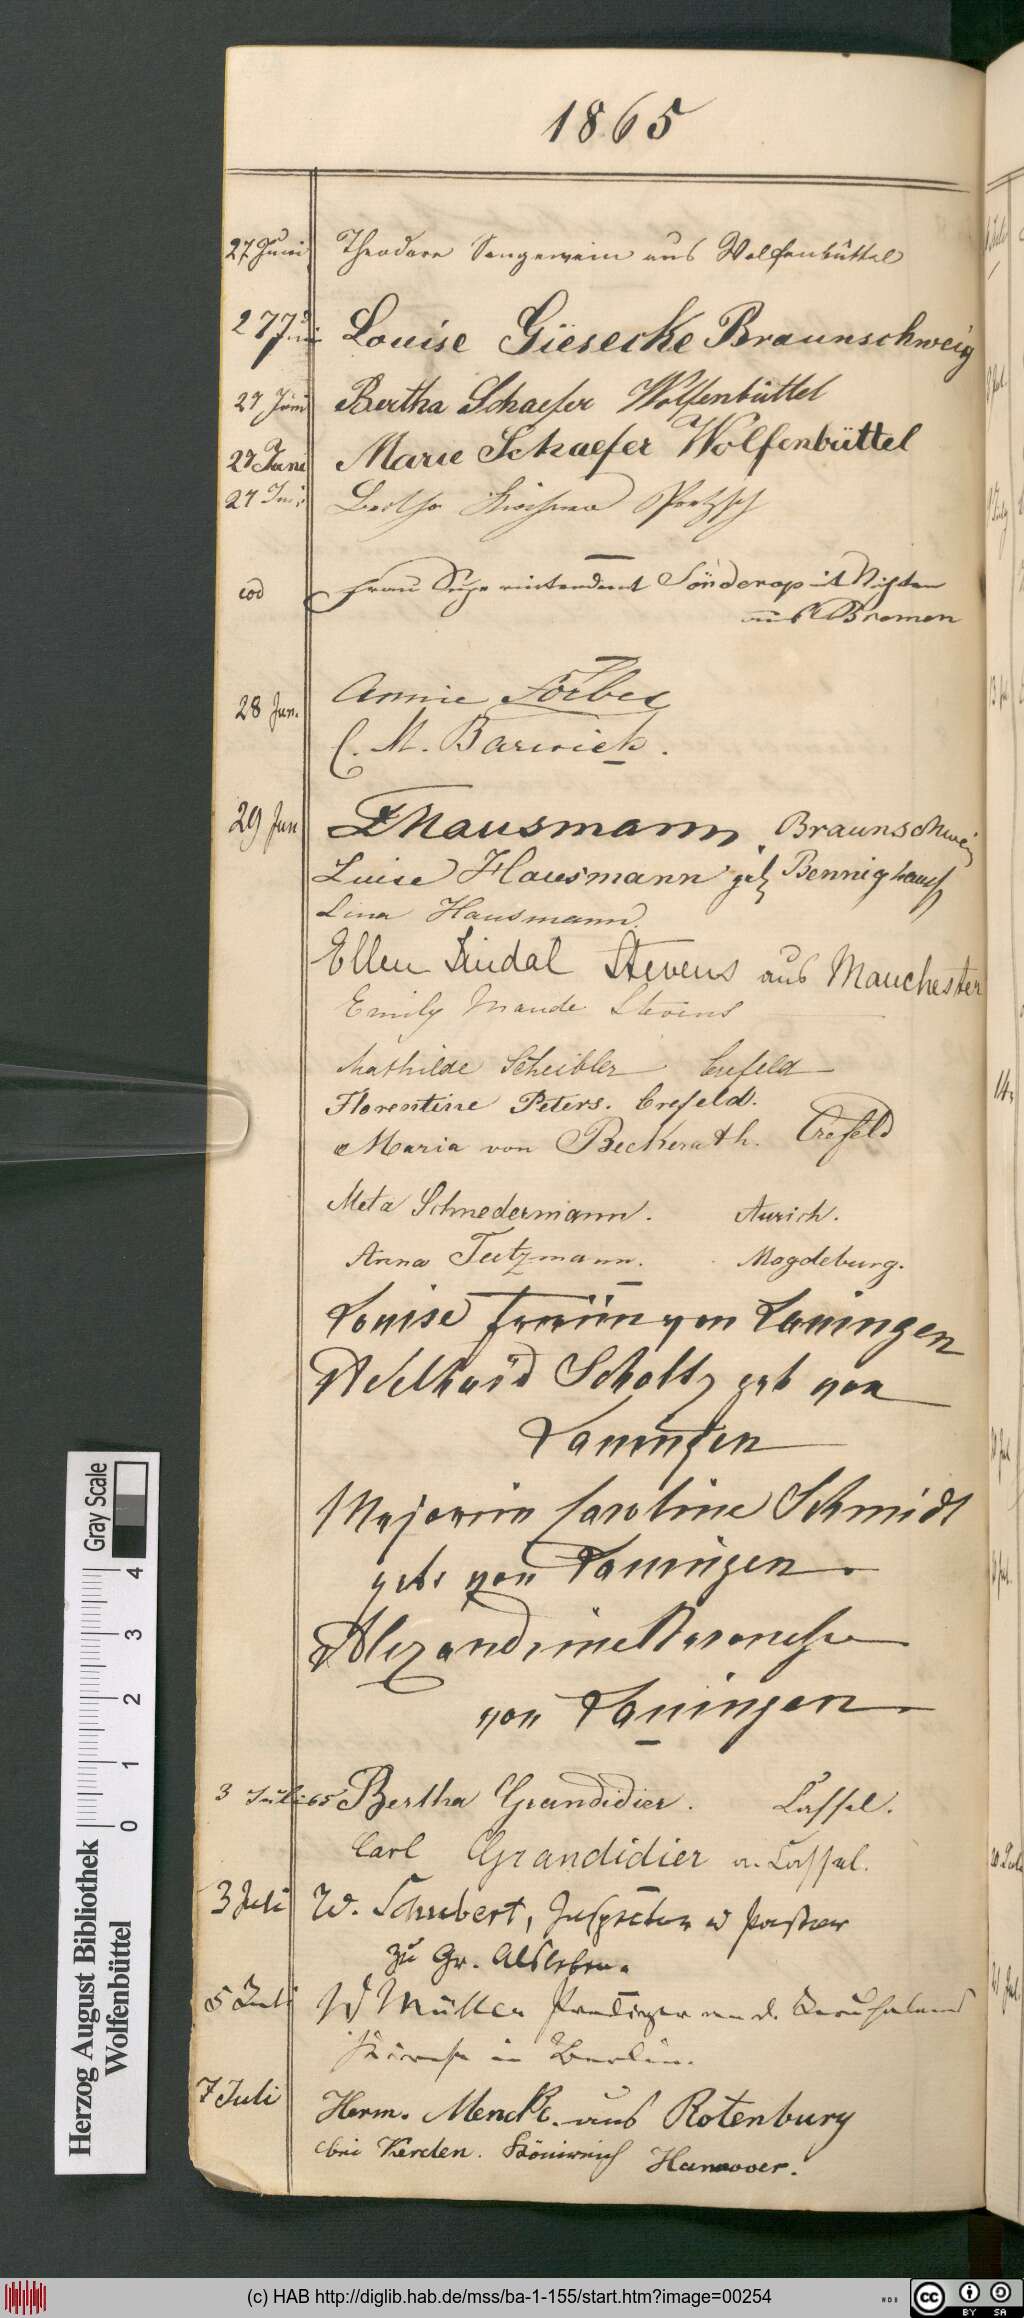 1865
27 Juni Theodore Sengewein aus Wolfenbüttel
27 Juni Louise Giesecke Braunschweig
27 Juni Bertha Schaefer Wolfenbüttel
27 Juni Marie Schaefer Wolfenbüttel
27 Juni Bertha
eod Frau Superintendent Sönderop mit Nichten
aus Bremen
28 Jun. Annie Forbes
C. M. Barwick.
29 Jun Hausmann. Braunschweig
Luise Hausmann geb Bennighauß
Lina Hausmann.
Ellen Lindal Stevens aus Manchester
Emily Maude Stevens
Mathilde Scheibler Crefeld
Florentine Peters. Crefeld.
Maria von Beckerath. Crefeld
Meta Schnedermann. Aurich.
Anna Teitzmann. Magdeburg.
Louise von Laningen
Scholtz geb von
Laningen
Majorin Caroline Schmidt
geb. von Laningen.
Alexandrine Baronesse
von Laningen.
3 Juli 65 Bertha Grandidier. Cassel.
Carl Grandidier a. Cassel.
3 Juli W. Schubert, Inspector u Pastor
zu Gr. Alsleben.
5 Juli W Müller Prediger an d. Jerusalems
Kirche in Berlin.
7 Juli Herm. Mencke. aus Rotenburg
bei Verden. Königreich Hannover.
Herzog August Bibliothek
Wolfenbüttel
Gray Scale
0 1 2 3 4
(c) HAB http://diglib.hab.de/mss/ba-1-155/start.htm?image=00254
WDB
cc BY SA